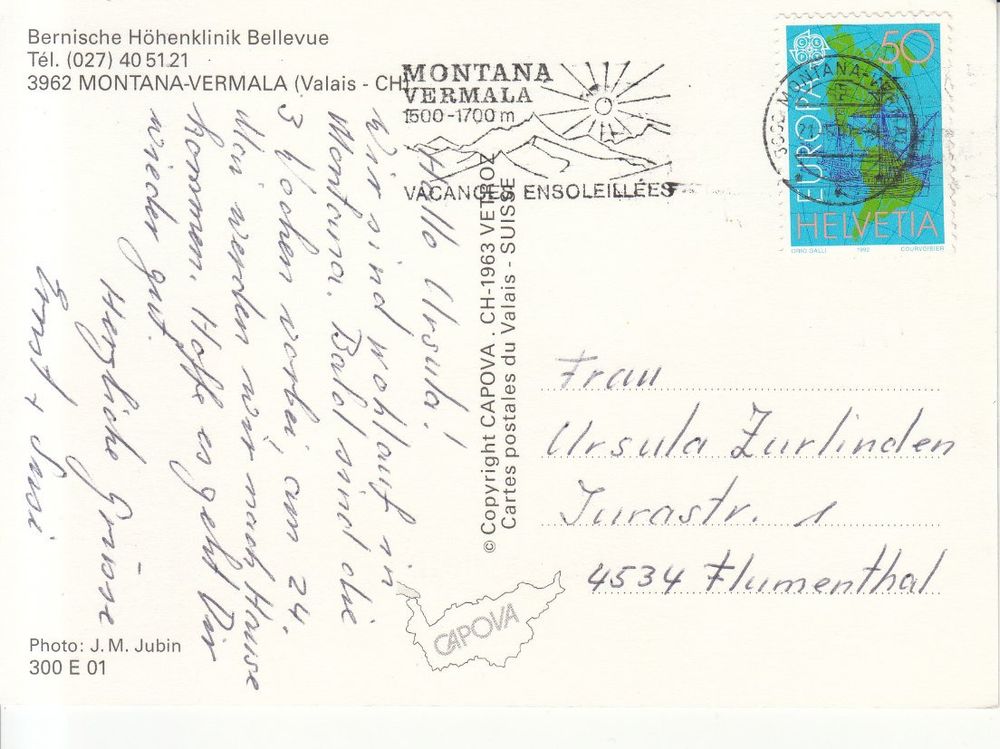 Bernische Höhenklinik Bellevue
Tél. (027) 40 51 21
3962 MONTANA-VERMALA (Valais - CH)
MONTANA
VERMALA
1500-1700 m
VACANCES ENSOLEILLÉES
EUROPA
50
HELVETIA
ORIO GALLI 1992 COURVOISIER
Hallo Ursula!
Wir sind wohlauf in
Montana. Bald sind die
3 Wochen vorbei, am 24.
Mai werden wir nach Hause
kommen. Hoffe es geht Dir
wieder gut.
Herzliche Grüsse
Ernst + Susi
© Copyright CAPOVA . CH-1963 VETROZ
Cartes postales du Valais - SUISSE
Frau
Ursula Zurlinden
Jurastr. 1
4534 Flumenthal
CAPOVA
Photo: J. M. Jubin
300 E 01